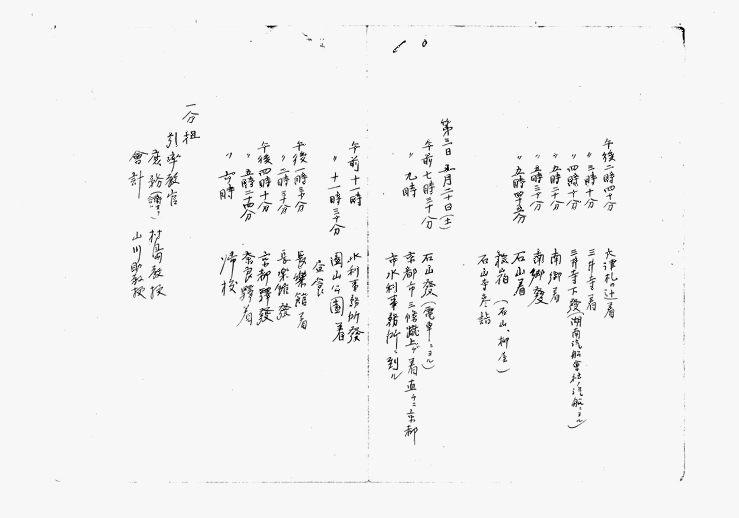 午後二時四十分 大津札の辻着
〃 三時十分 三井寺着
〃 四時十分 三井寺下發(湖南汽船會社ノ汽船ニヨル)
午後五時二十分 南郷着
〃 五時三十分 南郷發
〃 五時四十五分 石山着
投宿(石山、柳屋)
石山寺参詣
第三日 五月二十日(土)
午前七時三十分 石山發(電車ニヨル)
京都市三條蹴上ゲ着 直チニ京都
〃 九時 市水利事務所ニ到ル
午前十一時 水利事務所發
〃 十一時三十分 圓山公園着
昼食
午後一時三十分 長樂館着
〃 二時三十分 長楽館發
午後四時十分 京都驛發
〃 五時二十四分 奈良驛着
〃 六時 帰校
一分担
引率教官
庶務 村島教授
會計 山川助教授